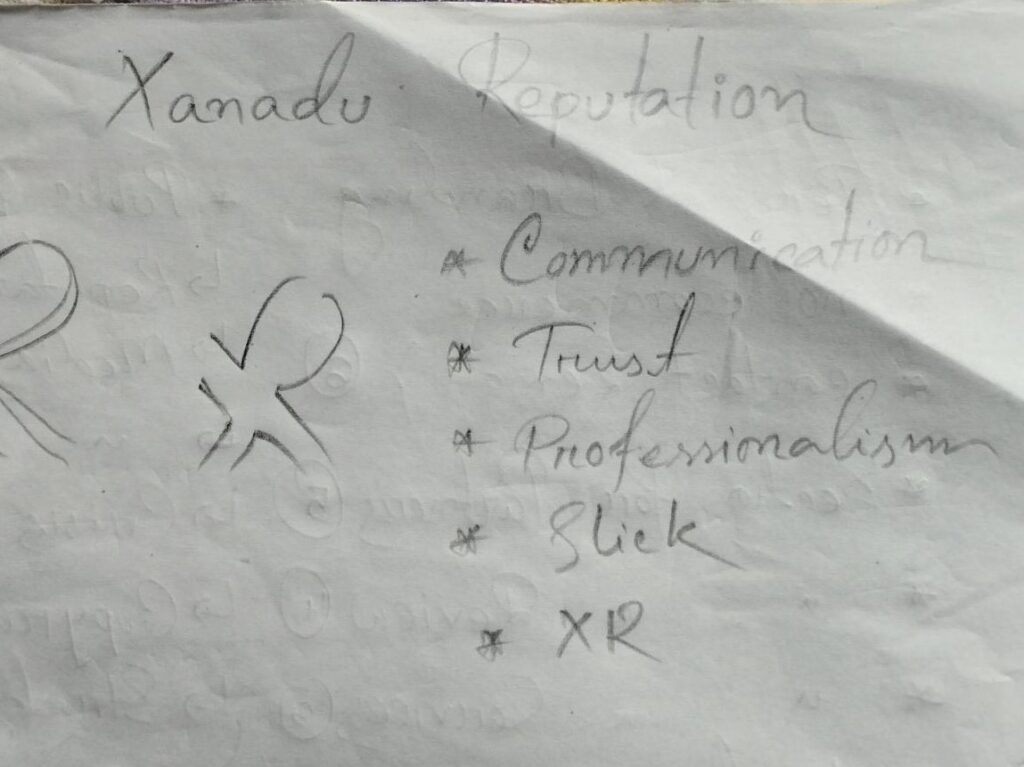 Xanadu Reputation
* Communication
* Trust
* Professionalism
* Slick
* XR